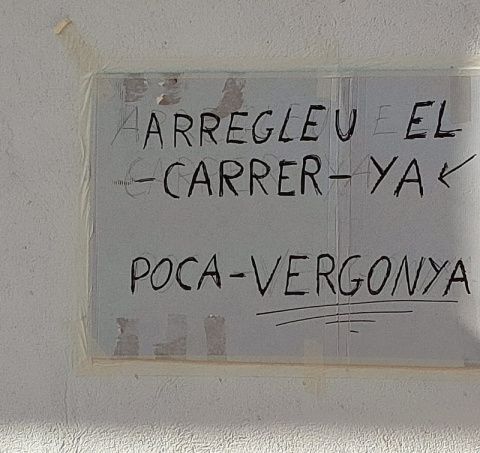 ARREGLEU EL
-CARRER-YA
POCA-VERGONYA